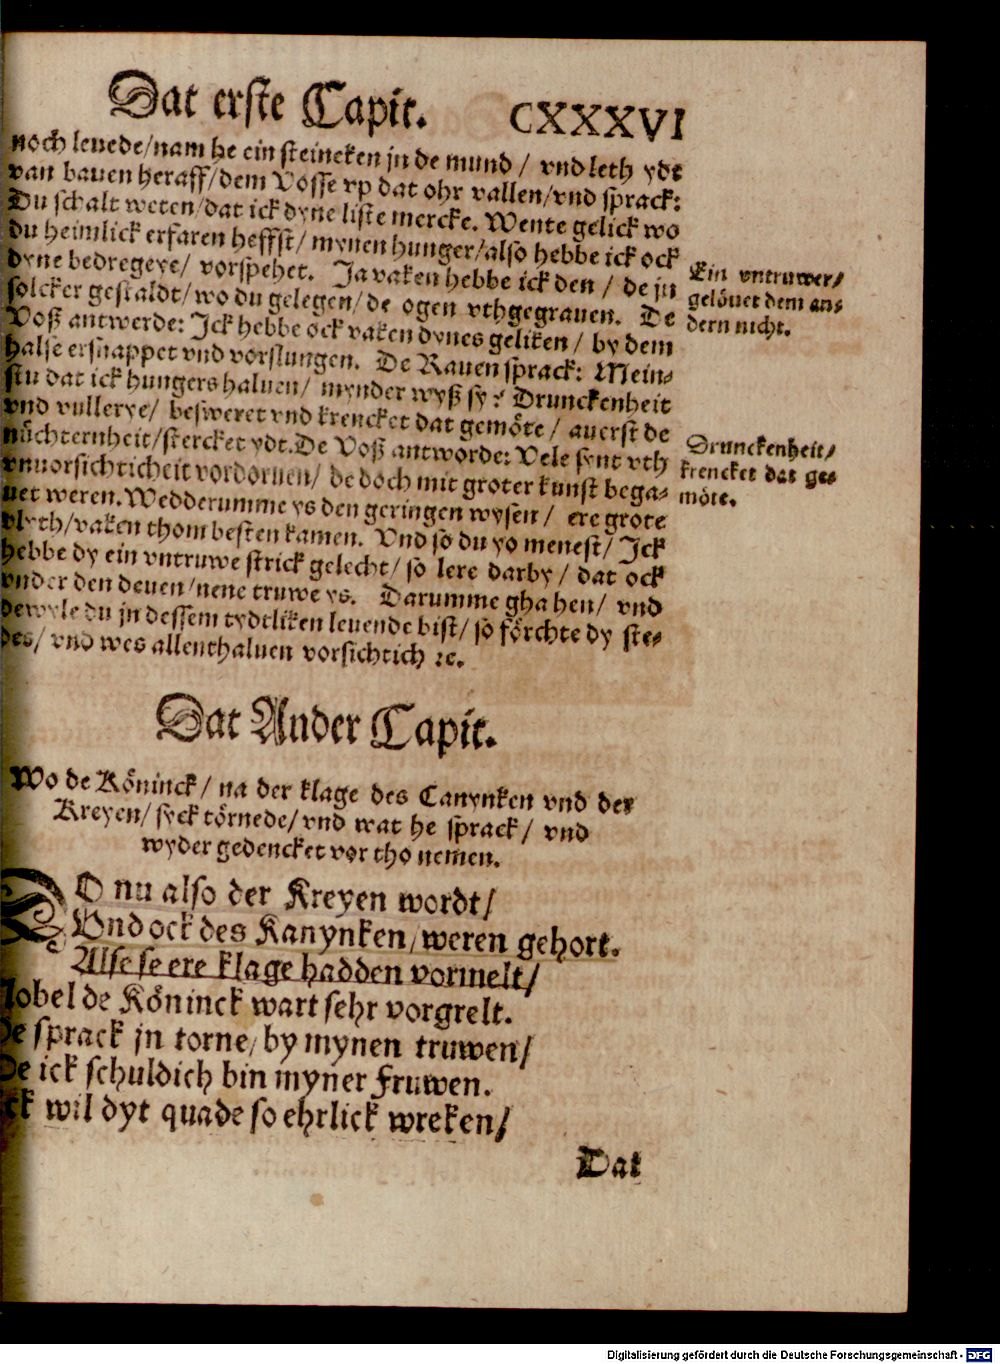 Dat erste Capit. CXXXVI
noch leuede/nam he ein steineken jn de mund / vnd leth ydt
van bauen heraff/dem Vosse vp dat ohr vallen/vnd sprack:
Du schalt weten/dat ick dyne liste mercke. Wente gelick wo
du heimlick erfaren heffst/ mynen hunger/also hebbe ick ock
dyne bedregeye/ vorspehet. Ja vaken hebbe ick den / de jn
solcker gestaldt/wo du gelegen/de ogen vthgegrauen. De
Voß antwerde: Ick hebbe ock vaken dynes geliken / by dem
halse ersnappet vnd vorslungen. De Rauen sprack: Mein⸗
stu dat ick hungers haluen/ mynder wyß sy? Drunckenheit
vnd vullerye/ besweret vnd krencket dat gemöte / auerst de
nüchternheit/stercket ydt. De Voß antworde: Vele synt vth
vnuorsichticheit vordoruen/ de doch mit groter kunst bega⸗
uet weren. Wedderumme ys den geringen wysen / ere grote
vlyth/vaken thom besten kamen. Vnd so du yo menest/ Ick
hebbe dy ein vntruwe strick gelecht/ so lere darby / dat ock
vnder den deuen/nene truwe ys. Darumme gha hen/ vnd
dewyle du jn dessem tydtliken leuende bist/ so förchte dy ste⸗
des/ vnd wes allenthaluen vorsichtich ꝛc.
Ein vntruwer/
gelöuet dem an⸗
dern nicht.
Drunckenheit/
krencket dat ge⸗
möte.
Dat Ander Capit.
Wo de Köninck/ na der klage des Canynken vnd der
Kreyen/ syck törnede/ vnd wat he sprack/ vnd
wyder gedencket vor tho nemen.
DO nu also der Kreyen wordt/
Vnd ock des Kanynken/weren gehort.
Alse se ere klage hadden vormelt/
Nobel de Köninck wart sehr vorgrelt.
He sprack jn torne/ by mynen truwen/
De ick schuldich bin myner Fruwen.
Ick wil dyt quade so ehrlick wreken/
Dat
Digitalisierung gefördert durch die Deutsche Forschungsgemeinschaft - DFG